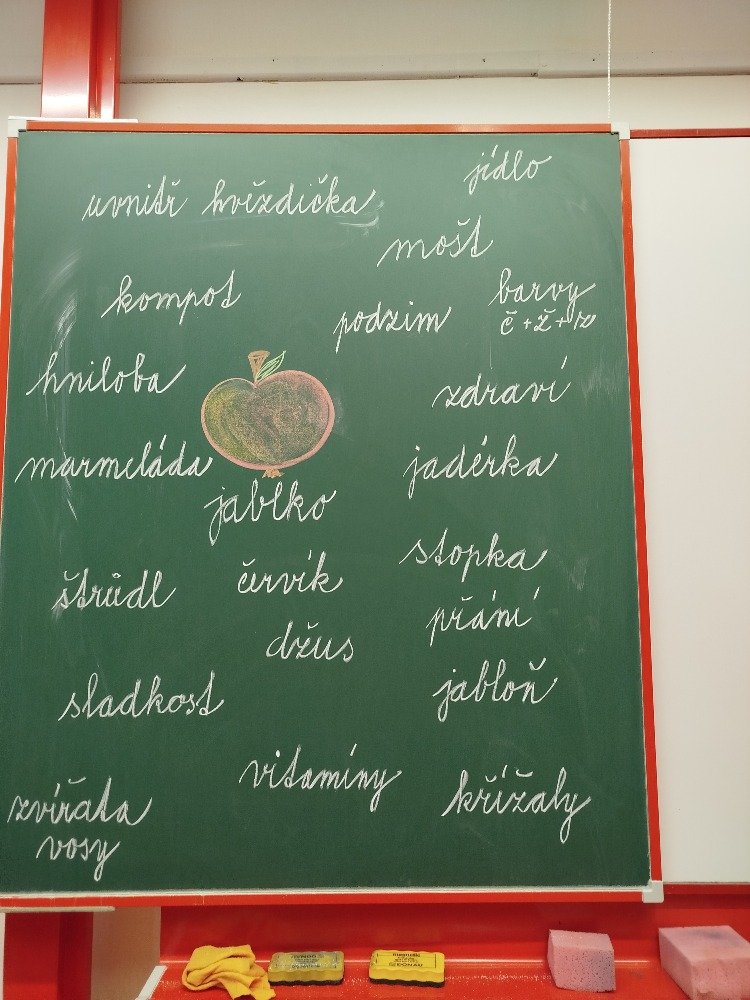 jídlo
uvnitř hvězdička
mošt
kompot
barvy
č + ž + z
podzim
hniloba
zdraví
marmeláda
jadérka
jablko
stopka
štrůdl
červík
přání
džus
sladkost
jabloň
vitamíny
křížaly
zvířata
vosy